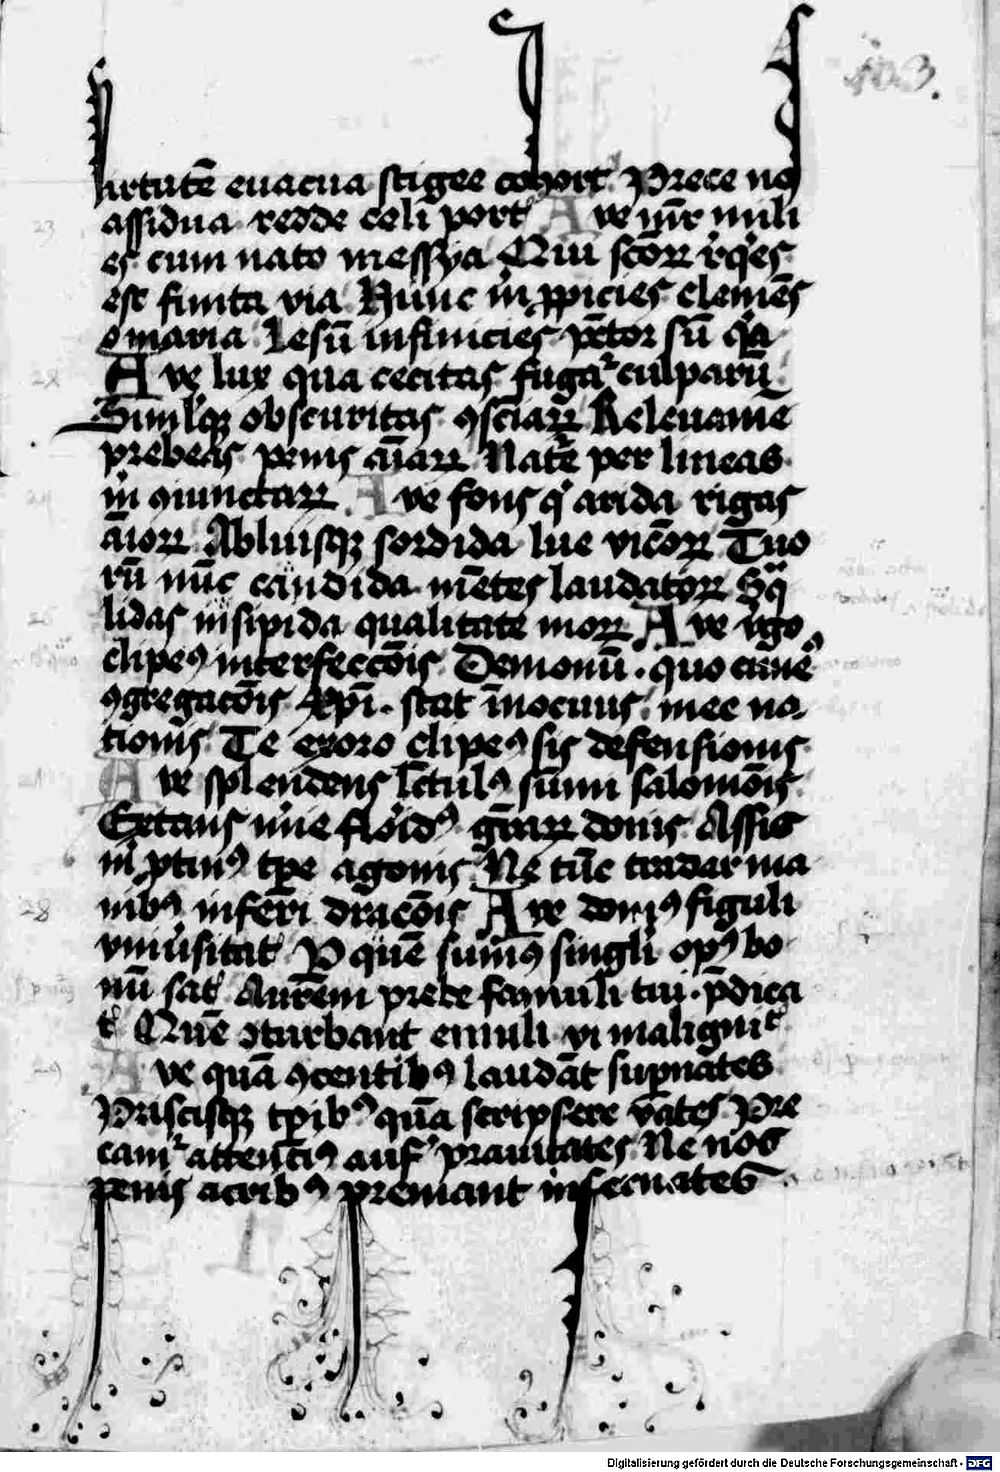 103.
virtutē euacua stigee cohort᷑ Prece nos
23 assidua redde celi port᷑ Aue mr̄ mili
es cum nato messya Qui scōꝝ
est finita via Hunc mͥ ꝓpicies clemēs
o maria Iesū infinicies pc̄tor sū qͥa
Aue lux qua cecitas fugat᷑ culparū
Simlꝗꝫ obscuritas ꝯsciaꝝ Releuamē
prebeas penis aīaꝝ Nate per lineas
24 mͥ ꝯiunctaꝝ Aue fons qͥ arida rigas
aīoꝝ Abluisqꝫ sordida lue viciōꝝ Tuo
rū nūc candida mētes laudatoꝝ Sqͣ
25 lidas insipida qualitate moꝝ Aue vͥgo
clipeꝰ interfecciōis Demonū . quo
ꝯgregaciōis xp̄i . stat īnocuus mee na
tionis Te exoro clipeꝰ sis defensionis
Aue splendens lc̄tulꝰ sūmi salomōis
Extans floridꝰ gr̄aꝝ donis Assis
mͥ tp̄e agonis Ne tūc tradar ma
28 nibꝰ inferi dracōis Aue domꝰ figuli
vniusitat᷑ P quē sumꝰ singlͥi opꝰ bo
nū sat᷑ Aurem prebe famuli tui . p̄dica
t᷑ Quē ꝯturbant emuli vi malignit᷑
29 Aue quā ꝯcentibꝰ laudāt supnates
Priscisqꝫ tp̄ibꝰ quā scripsere vates Pre
camͬ attenciꝰ aufͬ prauitates Ne nos
penis acribꝰ premant infernates .
Digitalisierung gefördert durch die Deutsche Forschungsgemeinschaft - DFG